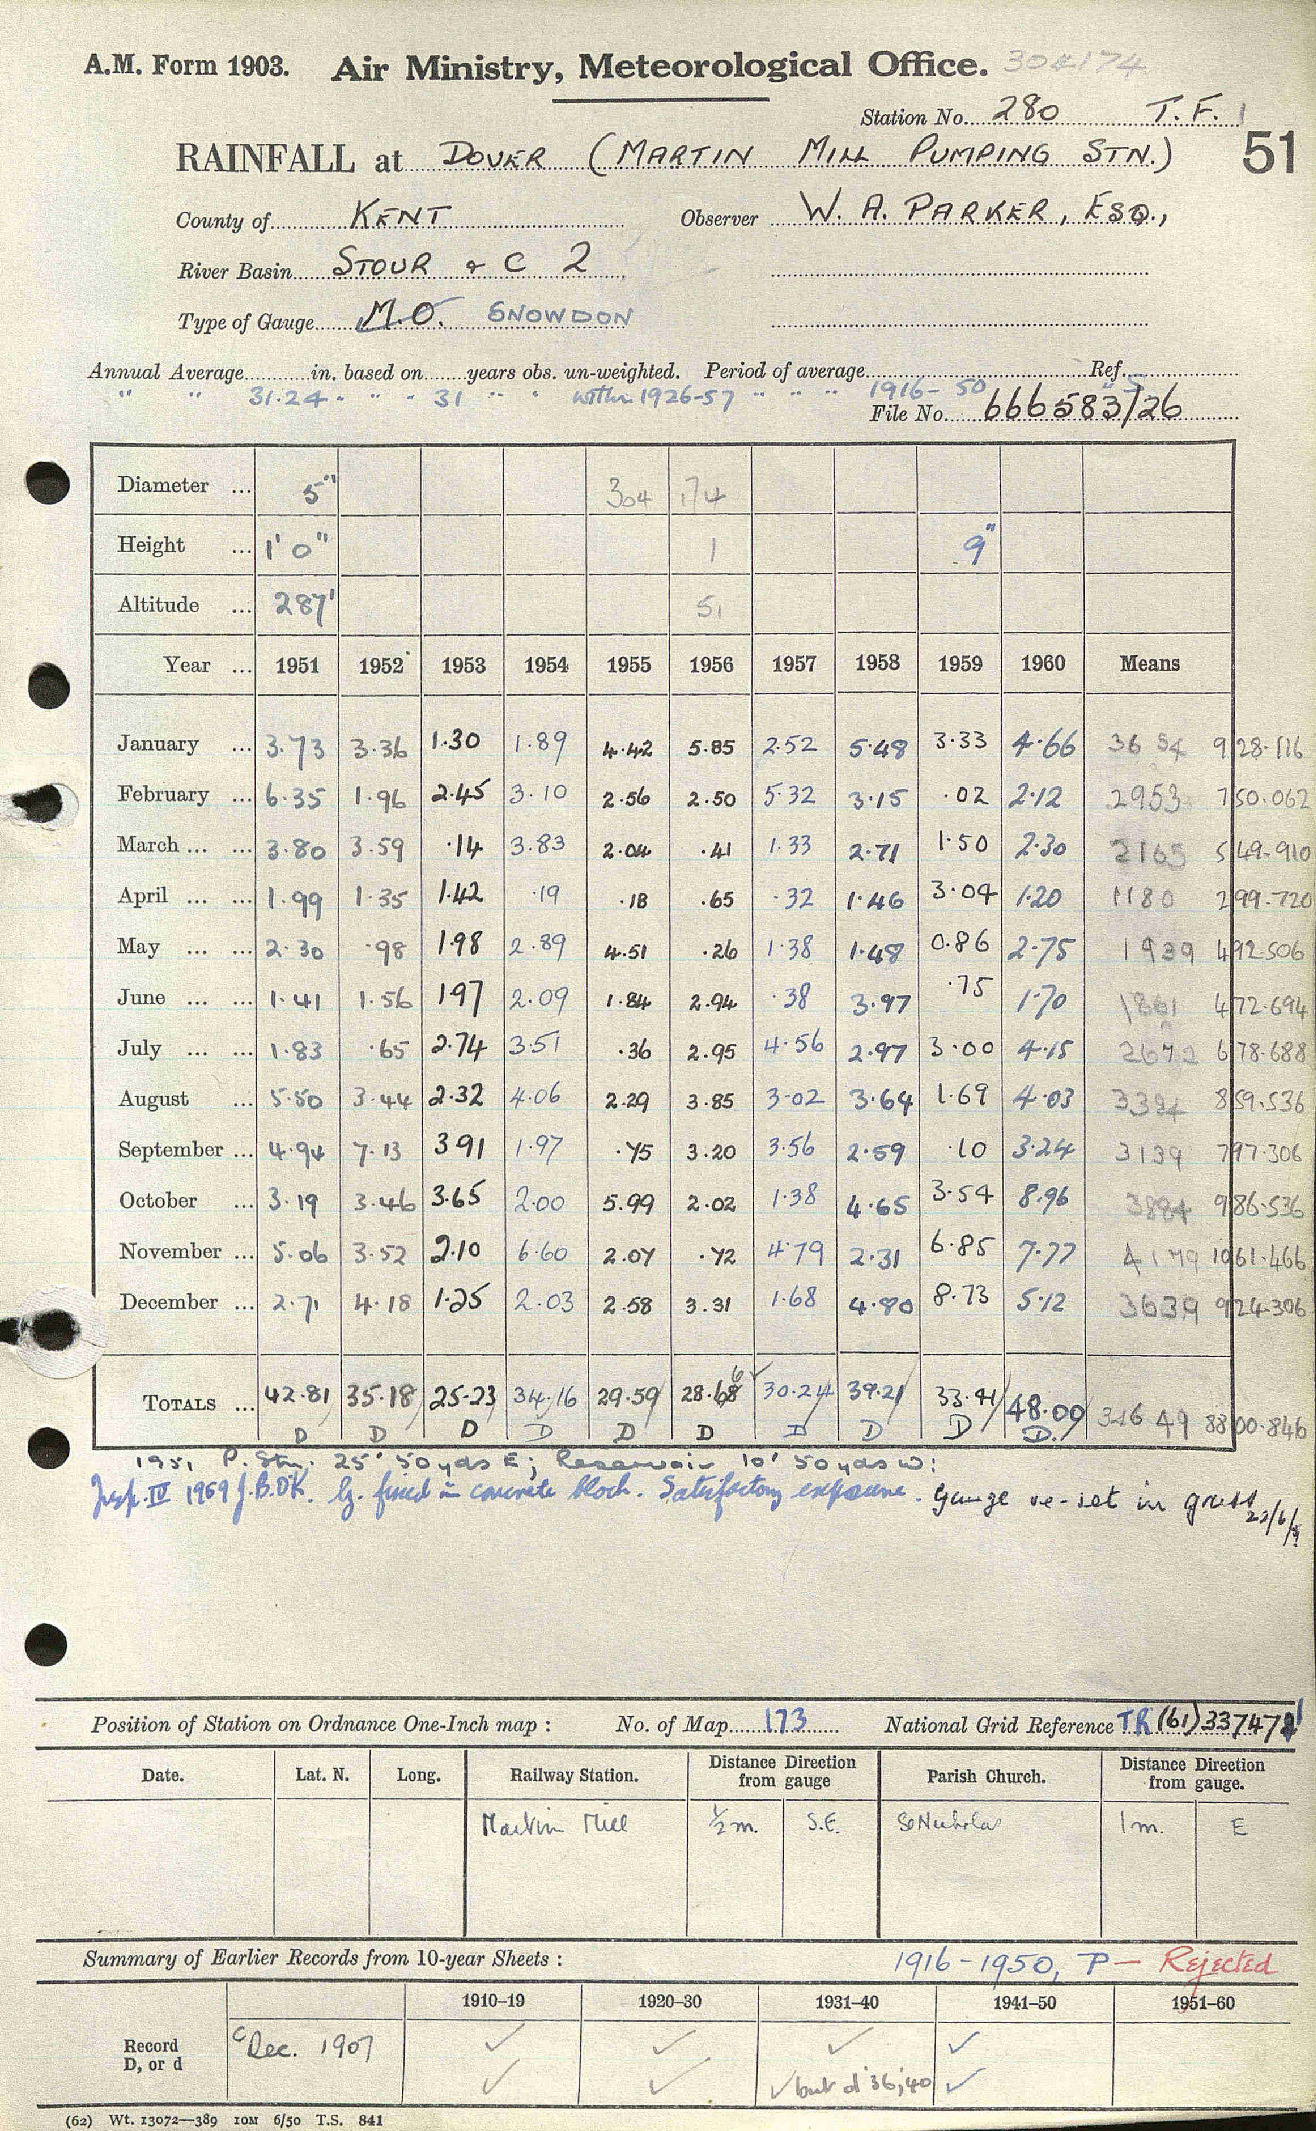 A.M. Form 1903. Air Ministry, Meteorological Office. 304174
Station No. 280 T.F. 1
RAINFALL at DOVER (MARTIN MILL PUMPING STN.) 51
County of KENT Observer W. A. PARKER, ESQ.,
River Basin STOUR & C 2
Type of Gauge M.O. SNOWDON
Annual Average in. based on years obs. un-weighted. Period of average Ref.
" " 31.24 " " " 31 " " within 1926-57 " " " 1916-50 " 5
File No. 666583/26
Diameter ... 5" 304 174
Height ... 1' 0" 1 9"
Altitude ... 287' 51
Year ... 1951 1952 1953 1954 1955 1956 1957 1958 1959 1960 Means
January ... 3.73 3.36 1.30 1.89 4.42 5.85 2.52 5.48 3.33 4.66 3654 928.116
February ... 6.35 1.96 2.45 3.10 2.56 2.50 5.32 3.15 .02 2.12 2953 750.062
March ... ... 3.80 3.59 .14 3.83 2.04 .41 1.33 2.71 1.50 2.30 2165 549.910
April ... ... 1.99 1.35 1.42 .19 .18 .65 .32 1.46 3.04 1.20 1180 299.720
May ... ... 2.30 .98 1.98 2.89 4.51 .26 1.38 1.48 0.86 2.75 1939 492.506
June ... ... 1.41 1.56 1.97 2.09 1.84 2.94 .38 3.97 .75 1.70 1861 472.694
July ... ... 1.83 .65 2.74 3.51 .36 2.95 4.56 2.97 3.00 4.15 2672 678.688
August ... 5.50 3.44 2.32 4.06 2.29 3.85 3.02 3.64 1.69 4.03 3384 859.536
September ... 4.94 7.13 3.91 1.97 .75 3.20 3.56 2.59 .10 3.24 3139 797.306
October ... 3.19 3.46 3.65 2.00 5.99 2.02 1.38 4.65 3.54 8.96 3884 986.536
November ... 5.06 3.52 2.10 6.60 2.07 .72 4.79 2.31 6.85 7.77 4179 1061.466
December ... 2.71 4.18 1.25 2.03 2.58 3.31 1.68 4.80 8.73 5.12 3639 924.306
TOTALS ... 42.81 35.18 25.23 34.16 29.59 28.68 30.24 39.21 33.41 48.00 34649 8800.846
D D D D D D D D D D.
1951 P. Stn. 25' 50yds E; Reservoir 10' 50yds W:
Insp. IV 1959 J.B.D.K. G. fixed in concrete block. Satisfactory exposure. Gauge re-set in grass 22/6/
Position of Station on Ordnance One-Inch map : No. of Map 173 National Grid Reference TR (61) 33747
Date. Lat. N. Long. Railway Station. Distance Direction from gauge Parish Church. Distance Direction from gauge.
Martin Mill ½ m. S.E. St Nicholas 1 m. E
Summary of Earlier Records from 10-year Sheets : 1916-1950, P — Rejected
1910-19 1920-30 1931-40 1941-50 1951-60
Record D, or d c Dec. 1907 ✓ ✓ ✓ ✓
✓ ✓ ✓ but d '36, 40 ✓
(62) Wt. 13072—389 10M 6/50 T.S. 841